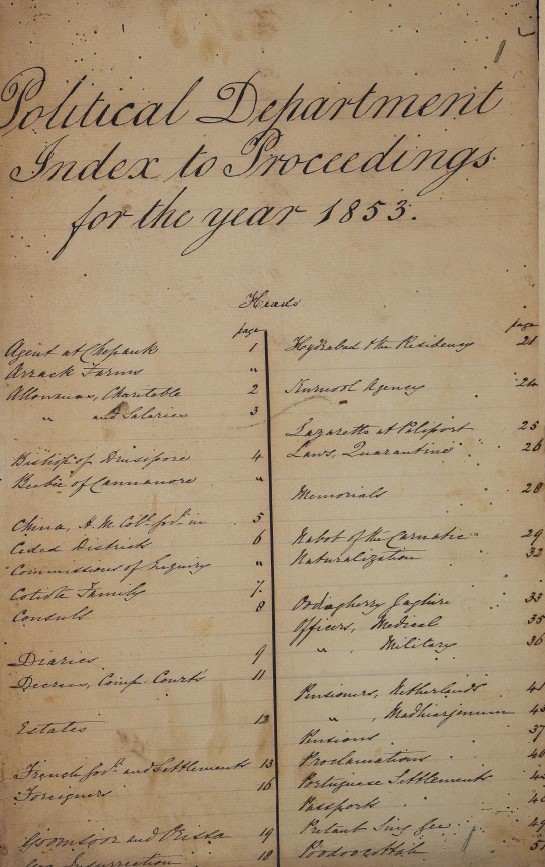 Political Department
Index to Proceedings
for the year 1853.
Heads
page
Agent at Chepauk 1
Arrack Farms "
Allowances, Charitable 2
" and Salaries 3
Bishop of Drusipore 4
Beebee of Cannanore "
China, H. M. Col. Govt. in 5
Ceded Districts 6
Commissions of Inquiry "
Cotiote Family 7.
Consuls 8
Diaries 9
Decrees, Comp. Courts 11
Estates 12
French Govt. and Settlements 13
Foreigners 16
Goomsoor and 19
Insurrection 18
page
Hydrabad & the Residency 21
Kurnool Agency 24
Lazaretto at Paliport 25
Laws, Quarantine 26
Memorials 28
Nabob of the Carnatic 29
Naturalization 32
Oodagherry Jaghire 33
Officers, Medical 35
" Military 36
Pensioners, Netherlands 41
"
Pensions 37
Proclamations
Portuguese Settlements
Passports
Purtaub Sing
51